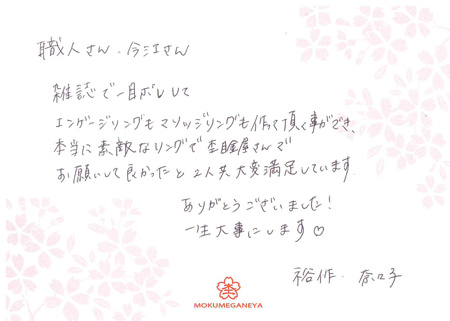 職人さん・今江さん
雑誌で一目ボレして
エンゲージリングもマリッジリングも作って頂く事ができ、
本当に素敵なリングで杢目金屋さんで
お願いして良かったと2人共大変満足しています
ありがとうございました!
一生大事にします♡
裕作・奈々子
MOKUMEGANEYA